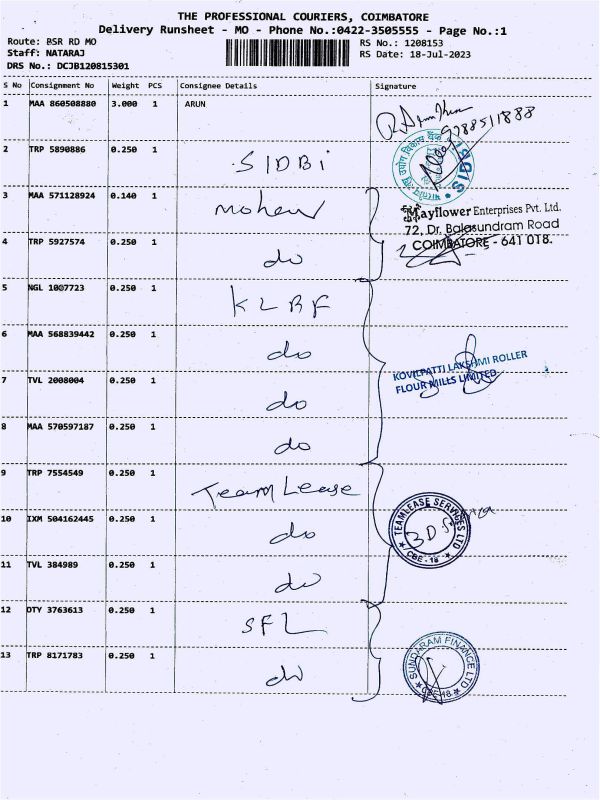 THE PROFESSIONAL COURIERS, COIMBATORE
Delivery Runsheet - MO - Phone No.:0422-3505555 - Page No.:1
Route: BSR RD MO
RS No.: 1208153
Staff: NATARAJ
RS Date: 18-Jul-2023
DRS No.: DCJB120815301
S No Consignment No Weight PCS Consignee Details Signature
1 MAA 860508880 3.000 1 ARUN
9788511888
2 TRP 5890886 0.250 1 SIDBi
भारतीय लघु उद्योग विकास बैंक
SIDBI
3 MAA 571128924 0.140 1 mohan
Mayflower Enterprises Pvt. Ltd.
72, Dr. Balasundram Road
COIMBATORE - 641 018.
4 TRP 5927574 0.250 1 do
5 NGL 1007723 0.250 1 KLRF
6 MAA 568839442 0.250 1 do
KOVILPATTI LAKSHMI ROLLER
FLOUR MILLS LIMITED
7 TVL 2008004 0.250 1 do
8 MAA 570597187 0.250 1 do
9 TRP 7554549 0.250 1 TeamLease
TEAMLEASE SERVICES LTD
CBE - 18
10 IXM 504162445 0.250 1 do
11 TVL 384989 0.250 1 do
12 OTY 3763613 0.250 1 SFL
13 TRP 8171783 0.250 1 do
SUNDARAM FINANCE LTD
CBE-18